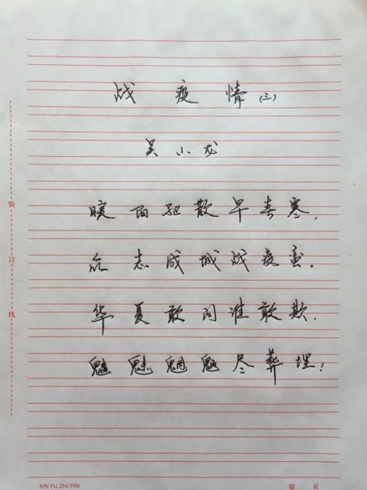 战疫情(三)
吴小龙
暖雨驱散早春寒,
众志成城战疫蛮.
华夏敢问谁敢欺.
魑魅魍魉尽葬埋!
装
订
线
XIN YU ZHI PIN
第 页